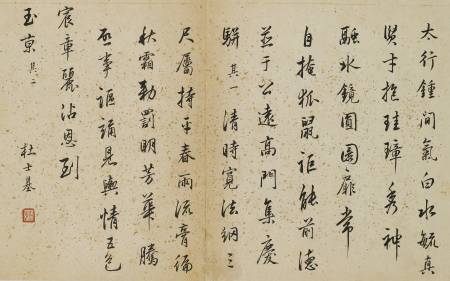 太行鍾間氣白水毓真
賢才抱珪璋秀神
融水鏡圓圜扉常
自掩狐鼠詎能前德
並于公遠高門集慶
駢 其一 清時寬法網三
尺屬持平春雨流膏徧
秋霜勅罰明芳華騰
丕事謳誦見輿情五色
宸章麗沾恩到
玉京 其二
杜士基